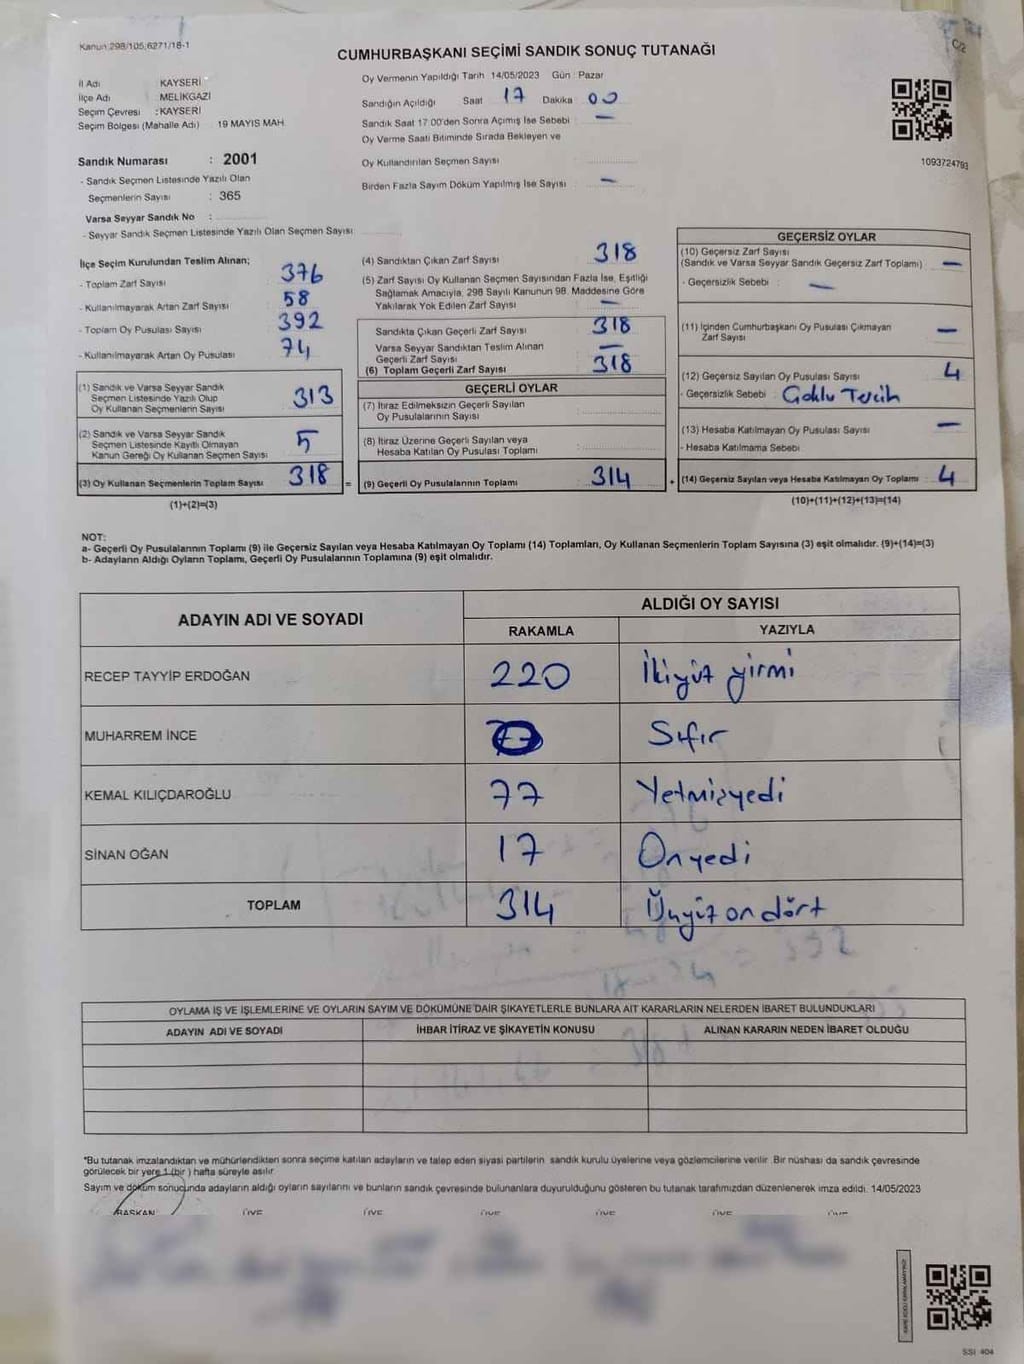 Kanun:298/105,6271/18-1
C/2
CUMHURBAŞKANI SEÇİMİ SANDIK SONUÇ TUTANAĞI
İl Adı : KAYSERİ
İlçe Adı : MELİKGAZİ
Seçim Çevresi : KAYSERİ
Seçim Bölgesi (Mahalle Adı) : 19 MAYIS MAH.
Oy Vermenin Yapıldığı Tarih : 14/05/2023 Gün : Pazar
Sandığın Açıldığı Saat 17 Dakika 00
Sandık Saat 17:00'den Sonra Açımış İse Sebebi : —
Oy Verme Saati Bitiminde Sırada Bekleyen ve
Oy Kullandırılan Seçmen Sayısı
Birden Fazla Sayım Döküm Yapılmış İse Sayısı : —
1093724793
Sandık Numarası : 2001
- Sandık Seçmen Listesinde Yazılı Olan
Seçmenlerin Sayısı : 365
Varsa Seyyar Sandık No :
- Seyyar Sandık Seçmen Listesinde Yazılı Olan Seçmen Sayısı
İlçe Seçim Kurulundan Teslim Alınan;
- Toplam Zarf Sayısı 376
- Kullanılmayarak Artan Zarf Sayısı 58
- Toplam Oy Pusulası Sayısı 392
- Kullanılmayarak Artan Oy Pusulası 74
(1) Sandık ve Varsa Seyyar Sandık
Seçmen Listesinde Yazılı Olup
Oy Kullanan Seçmenlerin Sayısı 313
(2) Sandık ve Varsa Seyyar Sandık
Seçmen Listesinde Kayıtlı Olmayan
Kanun Gereği Oy Kullanan Seçmen Sayısı 5
(3) Oy Kullanan Seçmenlerin Toplam Sayısı 318 =
(1)+(2)=(3)
(4) Sandıktan Çıkan Zarf Sayısı 318
(5) Zarf Sayısı Oy Kullanan Seçmen Sayısından Fazla İse, Eşitliği
Sağlamak Amacıyla, 298 Sayılı Kanunun 98. Maddesine Göre
Yakılarak Yok Edilen Zarf Sayısı —
Sandıkta Çıkan Geçerli Zarf Sayısı 318
Varsa Seyyar Sandıktan Teslim Alınan
Geçerli Zarf Sayısı —
(6) Toplam Geçerli Zarf Sayısı 318
GEÇERLİ OYLAR
(7) İtiraz Edilmeksizin Geçerli Sayılan
Oy Pusulalarının Sayısı
(8) İtiraz Üzerine Geçerli Sayılan veya
Hesaba Katılan Oy Pusulası Toplamı
(9) Geçerli Oy Pusulalarının Toplamı 314 +
GEÇERSİZ OYLAR
(10) Geçersiz Zarf Sayısı
(Sandık ve Varsa Seyyar Sandık Geçersiz Zarf Toplamı) —
- Geçersizlik Sebebi : —
(11) İçinden Cumhurbaşkanı Oy Pusulası Çıkmayan
Zarf Sayısı —
(12) Geçersiz Sayılan Oy Pusulası Sayısı 4
- Geçersizlik Sebebi : Çoklu Tercih
(13) Hesaba Katılmayan Oy Pusulası Sayısı —
- Hesaba Katılmama Sebebi
(14) Geçersiz Sayılan veya Hesaba Katılmayan Oy Toplamı 4
(10)+(11)+(12)+(13)=(14)
NOT:
a- Geçerli Oy Pusulalarının Toplamı (9) ile Geçersiz Sayılan veya Hesaba Katılmayan Oy Toplamı (14) Toplamları, Oy Kullanan Seçmenlerin Toplam Sayısına (3) eşit olmalıdır. (9)+(14)=(3)
b- Adayların Aldığı Oyların Toplamı, Geçerli Oy Pusulalarının Toplamına (9) eşit olmalıdır.
ADAYIN ADI VE SOYADI ALDIĞI OY SAYISI
RAKAMLA YAZIYLA
RECEP TAYYİP ERDOĞAN 220 İkiyüz yirmi
MUHARREM İNCE 0 Sıfır
KEMAL KILIÇDAROĞLU 77 Yetmişyedi
SİNAN OĞAN 17 Onyedi
TOPLAM 314 Üçyüz on dört
OYLAMA İŞ VE İŞLEMLERİNE VE OYLARIN SAYIM VE DÖKÜMÜNE DAİR ŞİKAYETLERLE BUNLARA AİT KARARLARIN NELERDEN İBARET BULUNDUKLARI
ADAYIN ADI VE SOYADI İHBAR İTİRAZ VE ŞİKAYETİN KONUSU ALINAN KARARIN NEDEN İBARET OLDUĞU
*Bu tutanak imzalandıktan ve mühürlendikten sonra seçime katılan adayların ve talep eden siyasi partilerin sandık kurulu üyelerine veya gözlemcilerine verilir. Bir nüshası da sandık çevresinde
görülecek bir yere 1 (bir) hafta süreyle asılır.
Sayım ve döküm sonucunda adayların aldığı oyların sayılarını ve bunların sandık çevresinde bulunanlara duyurulduğunu gösteren bu tutanak tarafımızdan düzenlenerek imza edildi. 14/05/2023
BAŞKAN ÜYE ÜYE ÜYE ÜYE ÜYE ÜYE
SSI 404